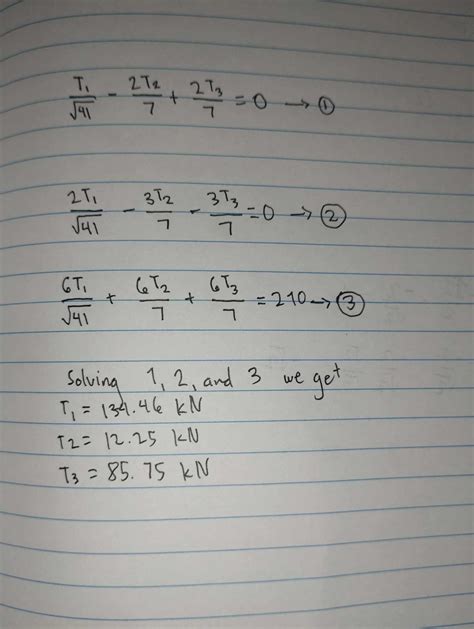 T₁/√41 - 2T₂/7 + 2T₃/7 = 0 → ①
2T₁/√41 - 3T₂/7 - 3T₃/7 = 0 → ②
6T₁/√41 + 6T₂/7 + 6T₃/7 = 210 → ③
Solving 1, 2, and 3 we get
T₁ = 134.46 kN
T2 = 12.25 kN
T₃ = 85.75 kN